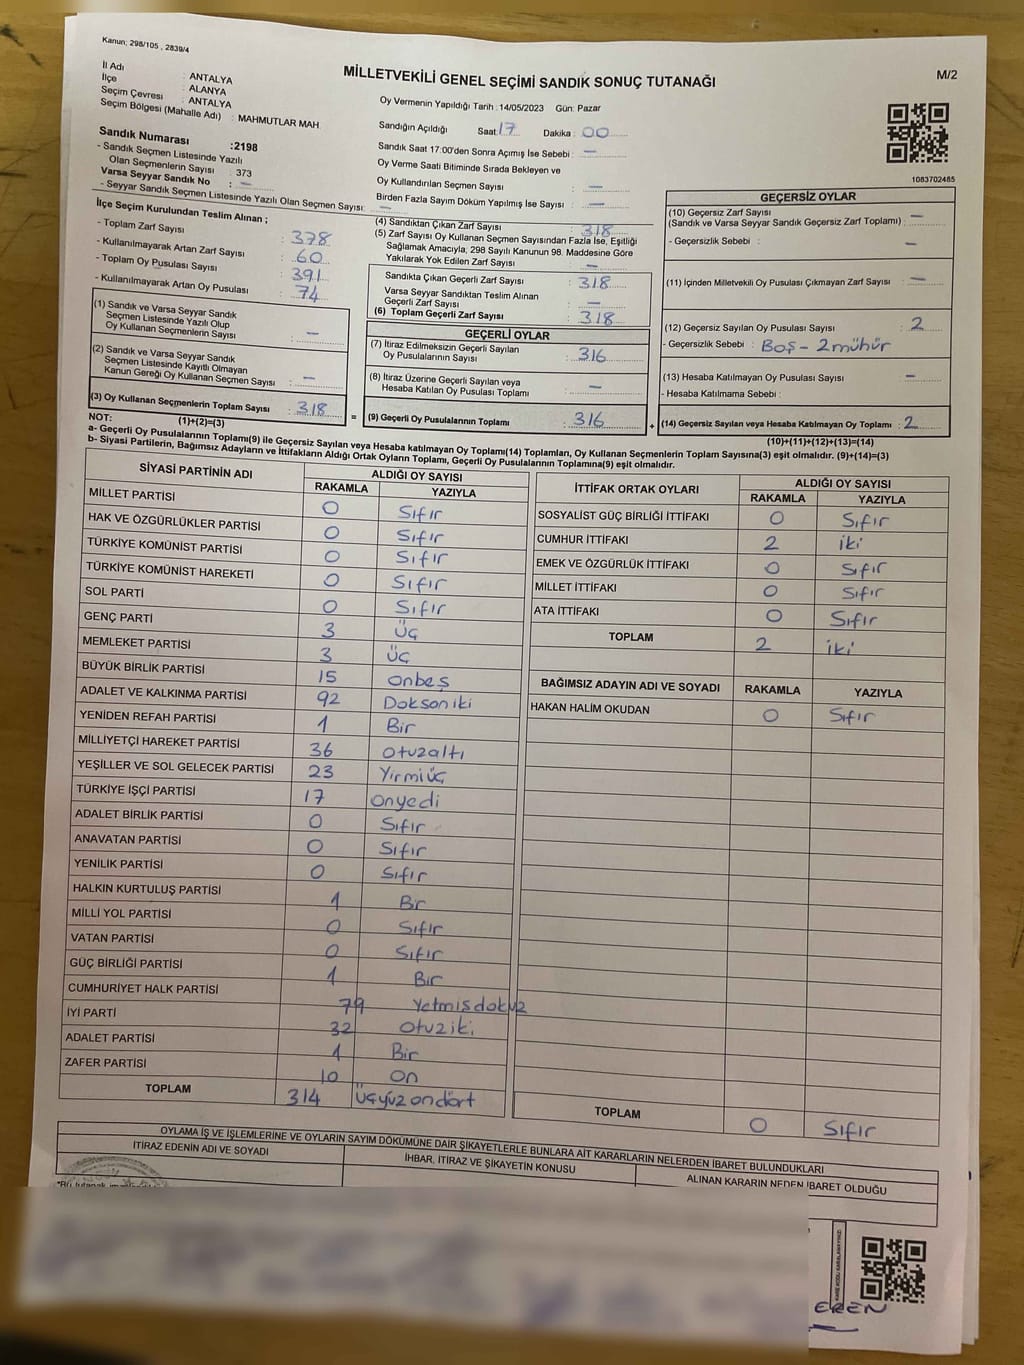 Kanun; 298/105 , 2839/4
MİLLETVEKİLİ GENEL SEÇİMİ SANDIK SONUÇ TUTANAĞI
M/2
İl Adı : ANTALYA
İlçe : ALANYA
Seçim Çevresi : ANTALYA
Seçim Bölgesi (Mahalle Adı) : MAHMUTLAR MAH
Sandık Numarası :2198
- Sandık Seçmen Listesinde Yazılı
Olan Seçmenlerin Sayısı : 373
Varsa Seyyar Sandık No : —
- Seyyar Sandık Seçmen Listesinde Yazılı Olan Seçmen Sayısı: —
Oy Vermenin Yapıldığı Tarih :14/05/2023 Gün: Pazar
Sandığın Açıldığı Saat: 17 Dakika : 00
Sandık Saat 17:00'den Sonra Açımış İse Sebebi : —
Oy Verme Saati Bitiminde Sırada Bekleyen ve
Oy Kullandırılan Seçmen Sayısı : —
Birden Fazla Sayım Döküm Yapılmış İse Sayısı : —
1083702485
İlçe Seçim Kurulundan Teslim Alınan ;
- Toplam Zarf Sayısı : 378
- Kullanılmayarak Artan Zarf Sayısı : 60
- Toplam Oy Pusulası Sayısı : 391
- Kullanılmayarak Artan Oy Pusulası : 74
(1) Sandık ve Varsa Seyyar Sandık
Seçmen Listesinde Yazılı Olup
Oy Kullanan Seçmenlerin Sayısı : —
(2) Sandık ve Varsa Seyyar Sandık
Seçmen Listesinde Kayıtlı Olmayan
Kanun Gereği Oy Kullanan Seçmen Sayısı : —
(3) Oy Kullanan Seçmenlerin Toplam Sayısı : 318
(1)+(2)=(3)
(4) Sandıktan Çıkan Zarf Sayısı : 318
(5) Zarf Sayısı Oy Kullanan Seçmen Sayısından Fazla İse, Eşitliği
Sağlamak Amacıyla, 298 Sayılı Kanunun 98. Maddesine Göre
Yakılarak Yok Edilen Zarf Sayısı : —
Sandıkta Çıkan Geçerli Zarf Sayısı : 318
Varsa Seyyar Sandıktan Teslim Alınan
Geçerli Zarf Sayısı : —
(6) Toplam Geçerli Zarf Sayısı : 318
GEÇERLİ OYLAR
(7) İtiraz Edilmeksizin Geçerli Sayılan
Oy Pusulalarının Sayısı : 316
(8) İtiraz Üzerine Geçerli Sayılan veya
Hesaba Katılan Oy Pusulası Toplamı : —
= (9) Geçerli Oy Pusulalarının Toplamı : 316 +
GEÇERSİZ OYLAR
(10) Geçersiz Zarf Sayısı
(Sandık ve Varsa Seyyar Sandık Geçersiz Zarf Toplamı) : —
- Geçersizlik Sebebi : —
(11) İçinden Milletvekili Oy Pusulası Çıkmayan Zarf Sayısı : —
(12) Geçersiz Sayılan Oy Pusulası Sayısı : 2
- Geçersizlik Sebebi : Boş - 2mühür
(13) Hesaba Katılmayan Oy Pusulası Sayısı : —
- Hesaba Katılmama Sebebi :
(14) Geçersiz Sayılan veya Hesaba Katılmayan Oy Toplamı : 2
(10)+(11)+(12)+(13)=(14)
NOT:
a- Geçerli Oy Pusulalarının Toplamı(9) ile Geçersiz Sayılan veya Hesaba katılmayan Oy Toplamı(14) Toplamları, Oy Kullanan Seçmenlerin Toplam Sayısına(3) eşit olmalıdır. (9)+(14)=(3)
b- Siyasi Partilerin, Bağımsız Adayların ve İttifakların Aldığı Ortak Oyların Toplamı, Geçerli Oy Pusulalarının Toplamına(9) eşit olmalıdır.
SİYASİ PARTİNİN ADI ALDIĞI OY SAYISI
RAKAMLA YAZIYLA
MİLLET PARTİSİ 0 Sıfır
HAK VE ÖZGÜRLÜKLER PARTİSİ 0 Sıfır
TÜRKİYE KOMÜNİST PARTİSİ 0 Sıfır
TÜRKİYE KOMÜNİST HAREKETİ 0 Sıfır
SOL PARTİ 0 Sıfır
GENÇ PARTİ 3 Üç
MEMLEKET PARTİSİ 3 Üç
BÜYÜK BİRLİK PARTİSİ 15 onbeş
ADALET VE KALKINMA PARTİSİ 92 Doksoniki
YENİDEN REFAH PARTİSİ 1 Bir
MİLLİYETÇİ HAREKET PARTİSİ 36 otuzaltı
YEŞİLLER VE SOL GELECEK PARTİSİ 23 Yirmiüç
TÜRKİYE İŞÇİ PARTİSİ 17 onyedi
ADALET BİRLİK PARTİSİ 0 Sıfır
ANAVATAN PARTİSİ 0 Sıfır
YENİLİK PARTİSİ 0 Sıfır
HALKIN KURTULUŞ PARTİSİ 1 Bir
MİLLİ YOL PARTİSİ 0 Sıfır
VATAN PARTİSİ 0 Sıfır
GÜÇ BİRLİĞİ PARTİSİ 1 Bir
CUMHURİYET HALK PARTİSİ 79 Yetmişdokuz
İYİ PARTİ 32 Otuziki
ADALET PARTİSİ 1 Bir
ZAFER PARTİSİ 10 On
TOPLAM 314 Üçyüzondört
İTTİFAK ORTAK OYLARI ALDIĞI OY SAYISI
RAKAMLA YAZIYLA
SOSYALİST GÜÇ BİRLİĞİ İTTİFAKI 0 Sıfır
CUMHUR İTTİFAKI 2 iki
EMEK VE ÖZGÜRLÜK İTTİFAKI 0 Sıfır
MİLLET İTTİFAKI 0 Sıfır
ATA İTTİFAKI 0 Sıfır
TOPLAM 2 iki
BAĞIMSIZ ADAYIN ADI VE SOYADI RAKAMLA YAZIYLA
HAKAN HALİM OKUDAN 0 Sıfır
TOPLAM 0 Sıfır
OYLAMA İŞ VE İŞLEMLERİNE VE OYLARIN SAYIM DÖKÜMÜNE DAİR ŞİKAYETLERLE BUNLARA AİT KARARLARIN NELERDEN İBARET BULUNDUKLARI
İTİRAZ EDENİN ADI VE SOYADI İHBAR, İTİRAZ VE ŞİKAYETİN KONUSU ALINAN KARARIN NEDEN İBARET OLDUĞU
EREN